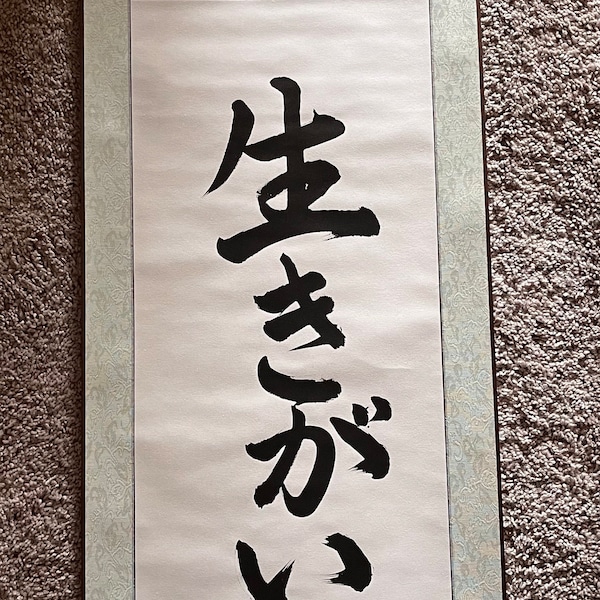 生きがい